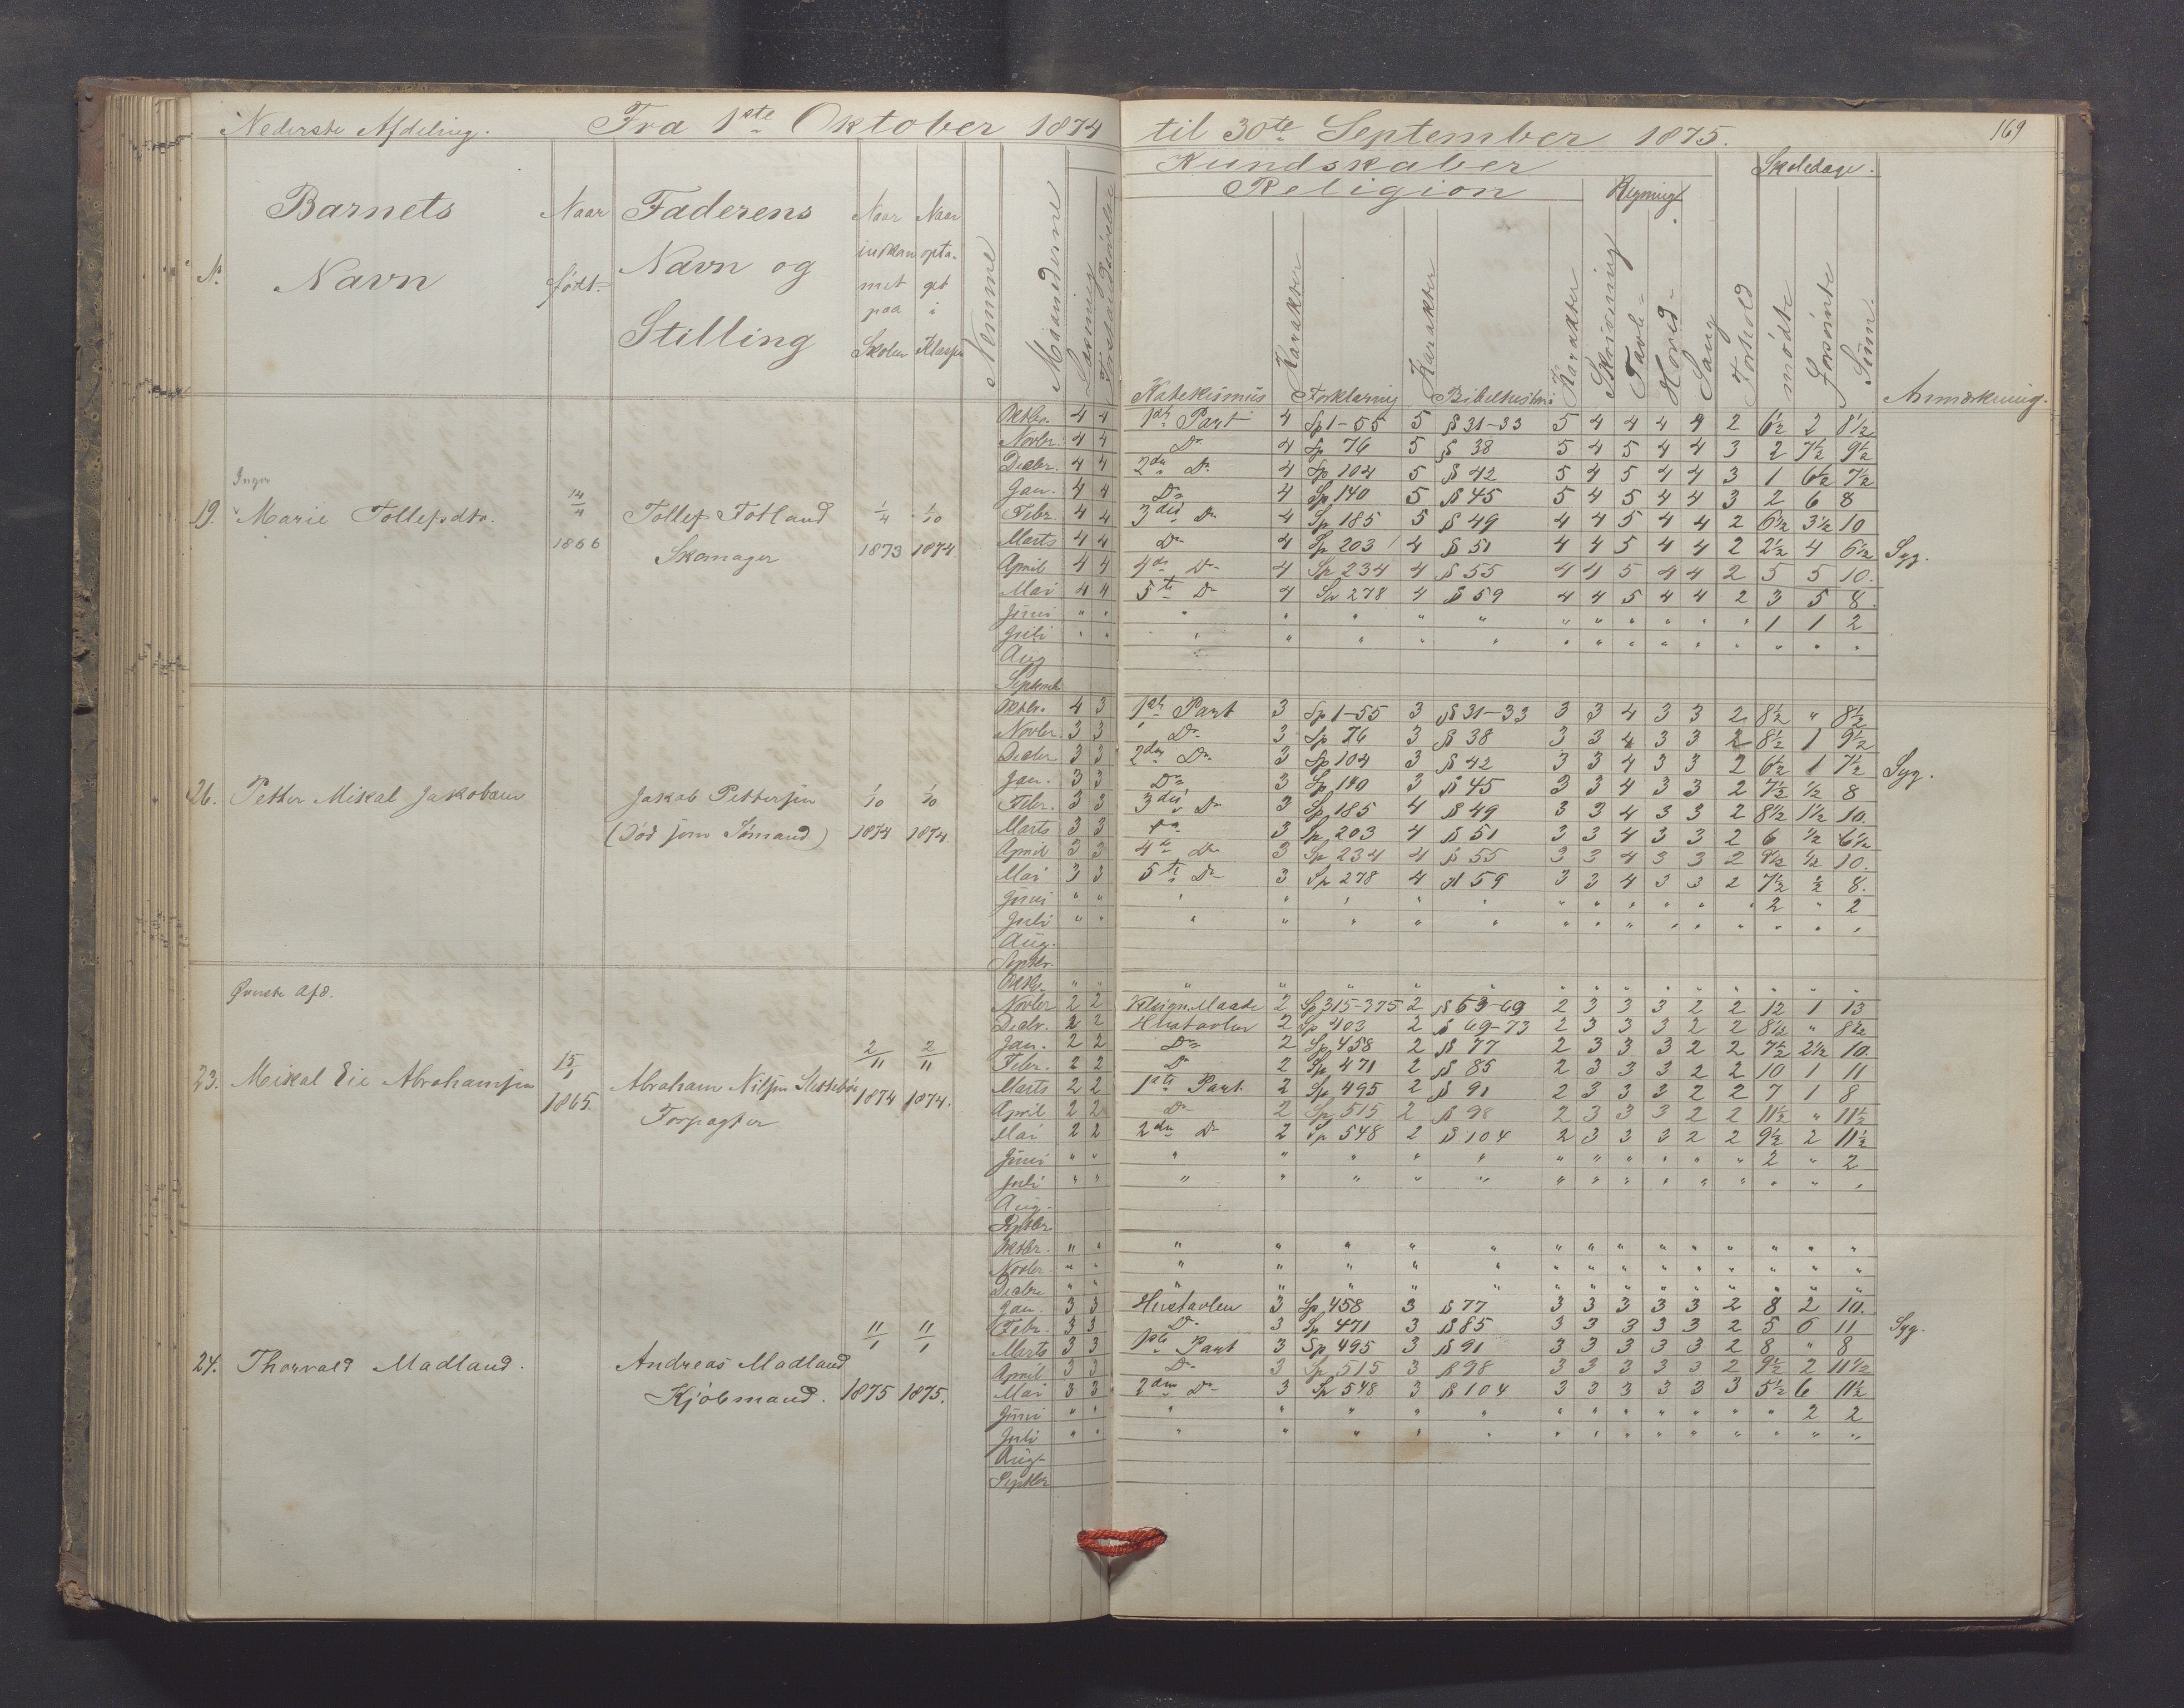 Nederste Afdeling. Fra 1ste Oktober 1874 til 30te September 1875. 169
Kundskaber Skoledage.
Religion Regning
No. Barnets Navn Naar født Faderens Navn og Stilling Naar indkommet paa Skolen Naar optaget i Klassen Nemme Maanederne Læsning Katekismus Karakter Forklaring Karakter Bibelhistorie Karakter Skrivning Tavle- Hoved- Sang Forhold mødte forsømte Sum. Anmærkning.
19. Inger Marie Tollefsdtr. 14/4 1866 Tollef Totland Skomager 1/4 1873 1/10 1874.
Oktbr. 4 4 1ste Part 4 Sp 1-55 5 § 31-33 5 4 4 4 4 2 6½ 2 8½
Novbr. 4 4 Do 4 Sp 76 5 § 38 5 4 5 4 4 3 2 7½ 9½
Decbr. 4 4 2den Do 4 Sp 104 5 § 42 5 4 5 4 4 3 1 6½ 7½
Jan. 4 4 Do 4 Sp 140 5 § 45 5 4 5 4 4 3 2 6 8
Febr. 4 4 3die Do 4 Sp 185 5 § 49 4 4 5 4 4 2 6½ 3½ 10
Marts 4 4 Do 4 Sp 203 4 § 51 4 4 5 4 4 2 2½ 4 6½ Syg.
April 4 4 4de Do 4 Sp 234 4 § 55 4 4 5 4 4 2 5 5 10.
Mai 4 4 5te Do 4 Sp 278 4 § 59 4 4 5 4 4 2 3 5 8.
Juni " " " " " " " " " " " " " 1 1 2
Juli " " " " " " " " " " " " " " " "
Aug
Septemb
26. Petter Mikal Jakobsen Jakob Pettersen (Død som Sømand) 1/10 1874 1/10 1874.
Oktbr. 4 3 1ste Part 3 Sp 1-55 3 § 31-33 3 3 4 3 3 2 8½ " 8½
Novbr. 3 3 Do 3 Sp 76 3 § 38 3 3 4 3 3 2 8½ 1 9½
Decbr 3 3 2den Do 3 Sp 104 3 § 42 3 3 4 3 3 2 6½ 1 7½ Syg.
Jan. 3 3 Do 3 Sp 140 3 § 45 3 3 4 3 3 2 7½ ½ 8
Febr. 3 3 3die Do 3 Sp 185 4 § 49 3 3 4 3 3 2 8½ 1½ 10.
Marts 3 3 Do 3 Sp 203 4 § 51 3 3 4 3 3 2 6 ½ 6½
April 3 3 4de Do 3 Sp 234 4 § 55 3 3 4 3 3 2 9½ ½ 10.
Mai 3 3 5te Do 3 Sp 278 4 § 59 3 3 4 3 3 2 7½ ½ 8.
Juni " " " " " " " " " " " " " 2 " 2
Juli " " " " " " " " " " " " " " " "
Aug.
Septbr.
Øverste Afd.
23. Mikal Eie Abrahamsen 15/1 1865. Abraham Nilsen Forpagter 2/11 1874 2/11 1874.
Oktbr. " " " " " " " " " " " " " " " "
Novbr 2 2 Velsign. Maade 2 Sp 315-375 2 § 63-69 2 3 3 3 2 2 12 1 13
Decbr. 2 2 Hustavlen 2 Sp 403 2 § 69-73 2 3 3 3 2 2 8½ " 8½
Jan. 2 2 Do 2 Sp 458 2 § 77 2 3 3 3 2 2 7½ 2½ 10.
Febr. 2 2 Do 2 Sp 471 2 § 85 2 3 3 3 2 2 10 1 11
Marts 2 2 1ste Part. 2 Sp 495 2 § 91 2 3 3 3 2 2 7 1 8
April 2 2 Do 2 Sp 515 2 § 98 2 3 3 3 2 2 11½ " 11½
Mai 2 2 2den Do 2 Sp 548 2 § 104 2 3 3 3 2 2 9½ 2 11½
Juni " " " " " " " " " " " " " 2 " 2
Juli " " " " " " " " " " " " " " " "
Aug.
Septbr
24. Thorvald Madland. Andreas Madland Kjøbmand. 11/1 1875 11/1 1875.
Oktbr. " " " " " " " " " " " " " " " "
Novbr. " " " " " " " " " " " " " " " "
Decbr " " " " " " " " " " " " " " " "
Jan. 3 3 Hustavlen 3 Sp 458 3 § 77 3 3 3 3 3 2 8 2 10.
Febr. 3 3 Do 3 Sp 471 3 § 85 3 3 3 3 3 2 5 6 11 Syg.
Marts 3 3 1ste Part 3 Sp 495 3 § 91 3 3 3 3 3 2 8 " 8
April 3 3 Do 3 Sp 515 3 § 98 3 3 3 3 3 2 9½ 2 11½
Mai 3 3 2den Do 3 Sp 548 3 § 104 3 3 3 3 3 3 5½ 6 11½
Juni " " " " " " " " " " " " " " 2 2
Juli " " " " " " " " " " " " " " " "
Aug.
Septbr